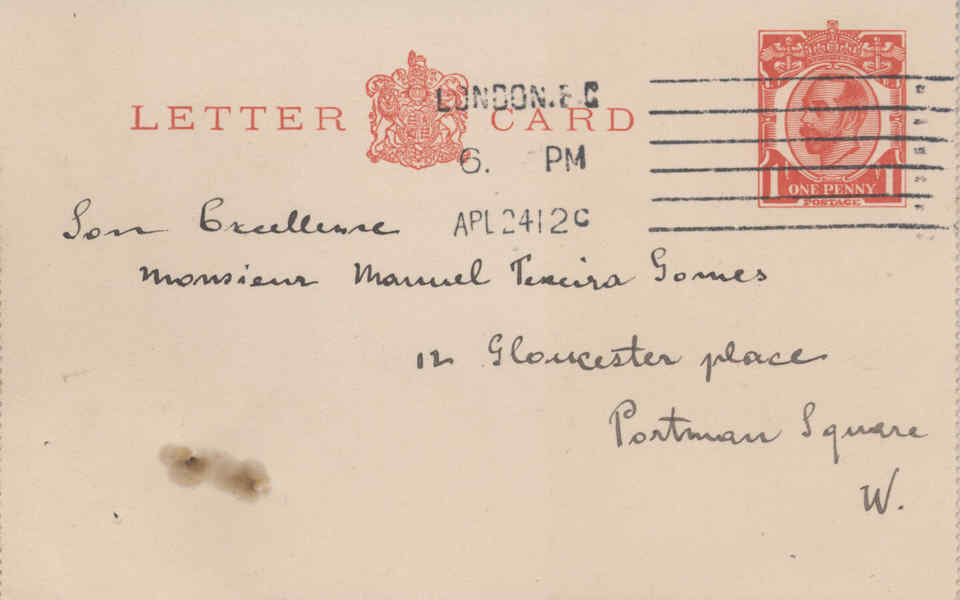 LETTER CARD
LONDON.E.C
6. PM
APL 24 12 C
1 ONE PENNY 1
POSTAGE
Son Excellence
Monsieur Manuel Texeira Gomes
12 Gloucester place
Portman Square
W.